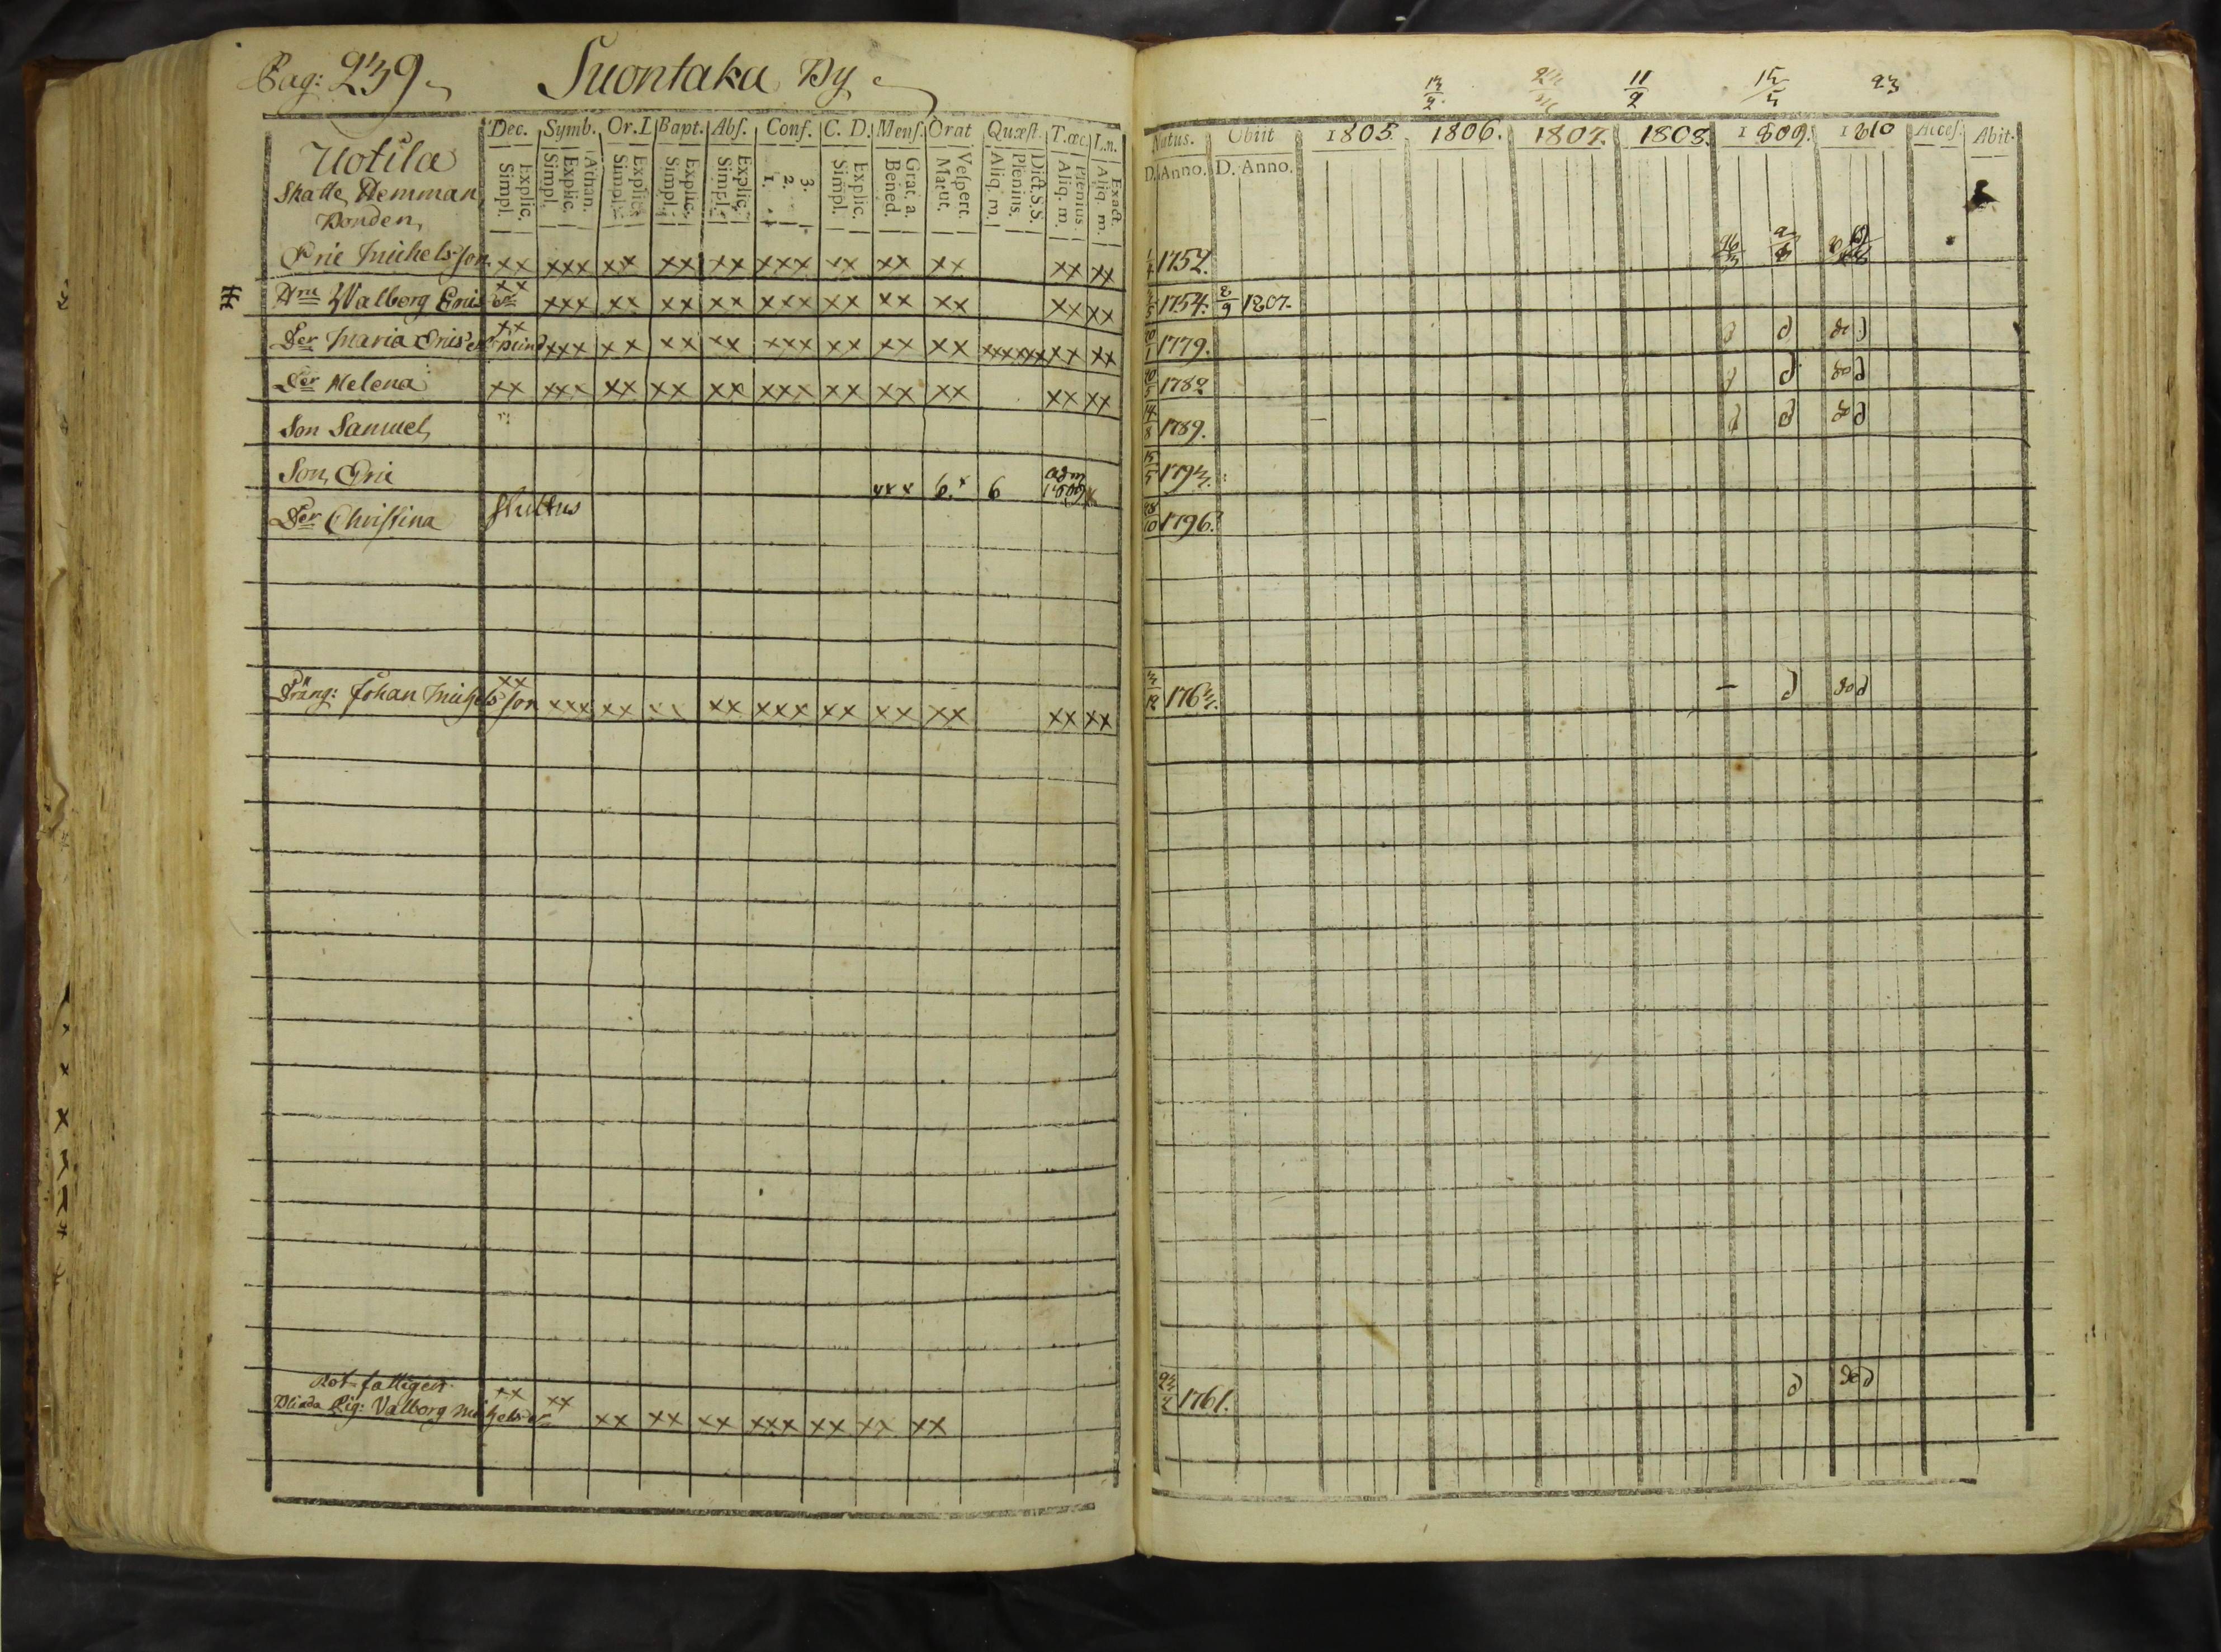 Pag: 239 Suontaka By
Uotila
Skatte Hemman
Bonden,
Dec. Symb. Or. I Bapt. Abſ. Conf. C. D. Menſ. Orat Quæſt. T. œc. L. n.
Explic. Simpl. Athan. Explic. Simpl. Explic. Simpl. Explic. Simpl. Explic. Simpl. 3. 2. 1. Explic. Simpl. Grat. a. Bened. Veſpert. Matut. Dict. S. S. Plenius. Aliq. m. Plenius. Aliq. m. Exact. Aliq. m.
Eric Michels son xx xxx xx xx xx xxx xx xx xx xx xx
Hru Walborg Erics dr xx xxx xx xx xx xxx xx xx xx xx xx
Der Maria Erics dr xx xxx xx xx xx xxx xx xx xx xxxxxx xx xx
Der Helena xx xxx xx xx xx xxx xx xx xx xx xx
Son Samuel
Son Eric xxx 6. x 6 adm
Der Christina
Dräng: Johan Michels son xx xxx xx xx xx xxx xx xx xx xx xx
Rot-fattigen
Blinda Pig: Valborg Michels dr xx xx xx xx xx xxx xx xx xx
13/2. 11/2 15/5 23
Natus. Obiit 1805. 1806. 1807. 1808. 1809. 1810 Acceſ. Abit.
D. Anno. D. Anno.
1752.
1754. 8/9 1807.
20/1 1779.
20/5 1782
14/8 1789.
15/5 1793.
28/10 1796.
3/12 1763.
1761.